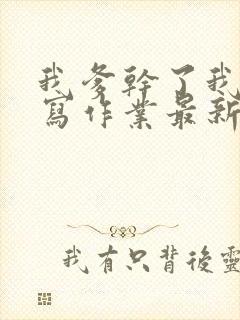 我爹幹了我
寫作業最新
我有只背後靈